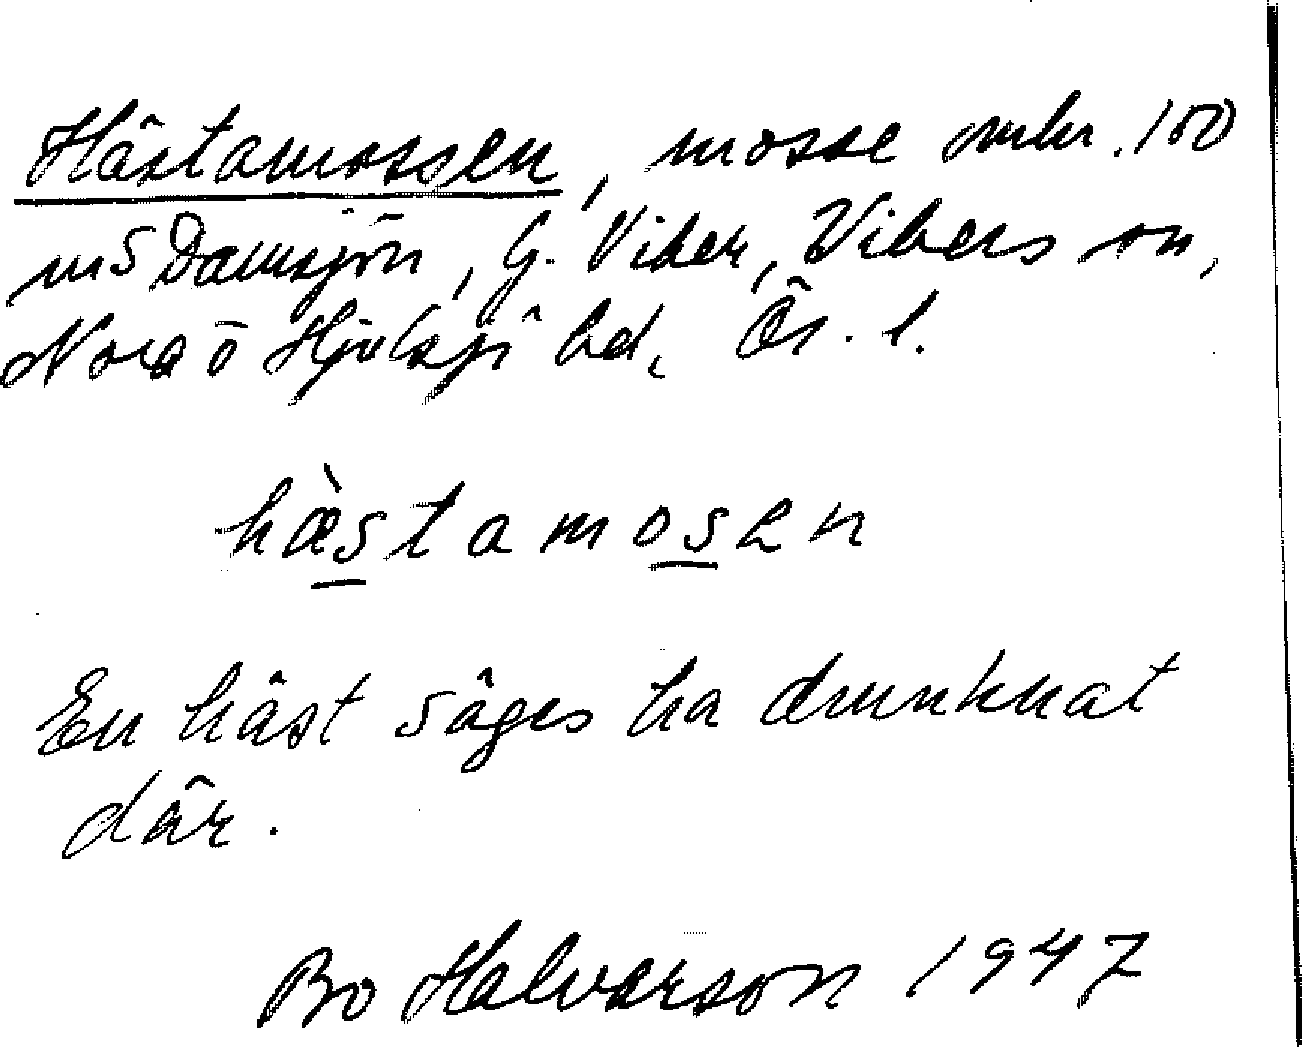 Hästamossen, mosse omkr. 150
m S Damsjön, G. Viker, Vikers sn,
Nora o Hjulsjö hd, Ör. l.
hæ̀stamosen
En häst säges ha drunknat
där.
Bo Halvarson 1947